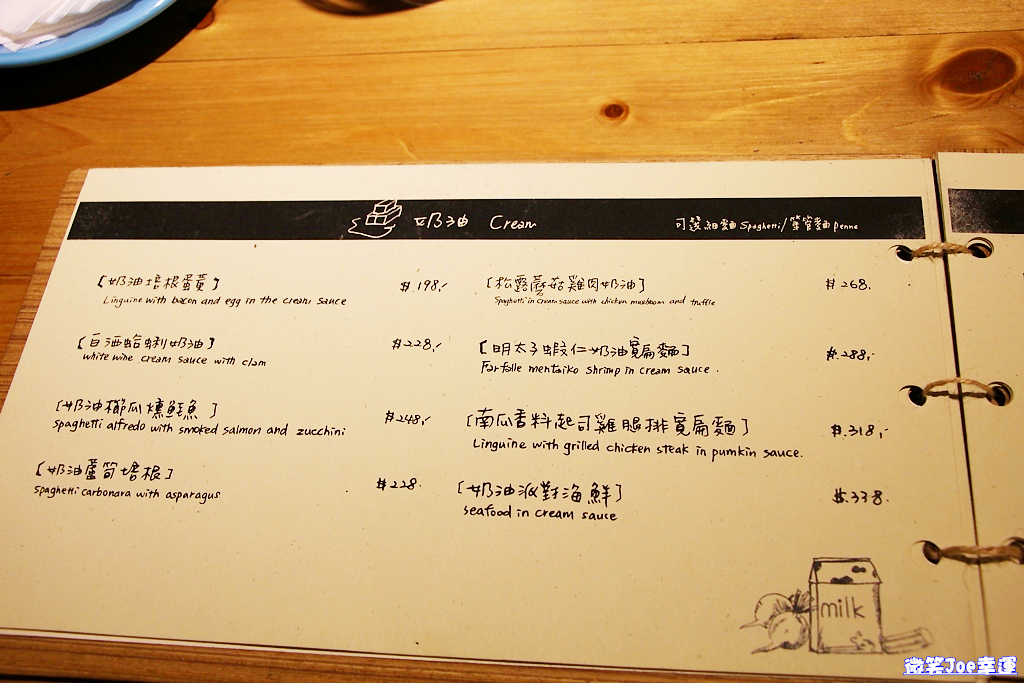 奶油 Cream
可選細麵 Spaghetti/筆管麵 penne
[奶油培根蛋黃] $.198.-
Linguine with bacon and egg in the cream sauce
[白酒蛤蜊奶油] $228.-
white wine cream sauce with clam
[奶油櫛瓜燻鮭魚] $248.-
spaghetti alfredo with smoked salmon and zucchini
[奶油蘆筍培根] $228.
Spaghetti carbonara with asparagus
[松露蘑菇雞肉奶油] $268.
Spaghetti in cream sauce with chicken mushroom and truffle
[明太子蝦仁奶油寬扁麵] $.288.-
Farfalle mentaiko shrimp in cream sauce.
[南瓜香料起司雞腿排寬扁麵] $.318.-
Linguine with grilled chicken steak in pumkin sauce.
[奶油派對海鮮] $.338.
seafood in cream sauce
milk
微笑Joe幸運